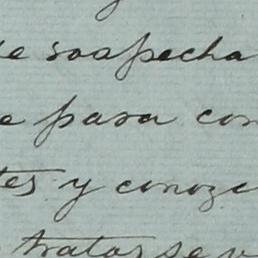 e sospecha
e para con
tes y conoze
tratarse v